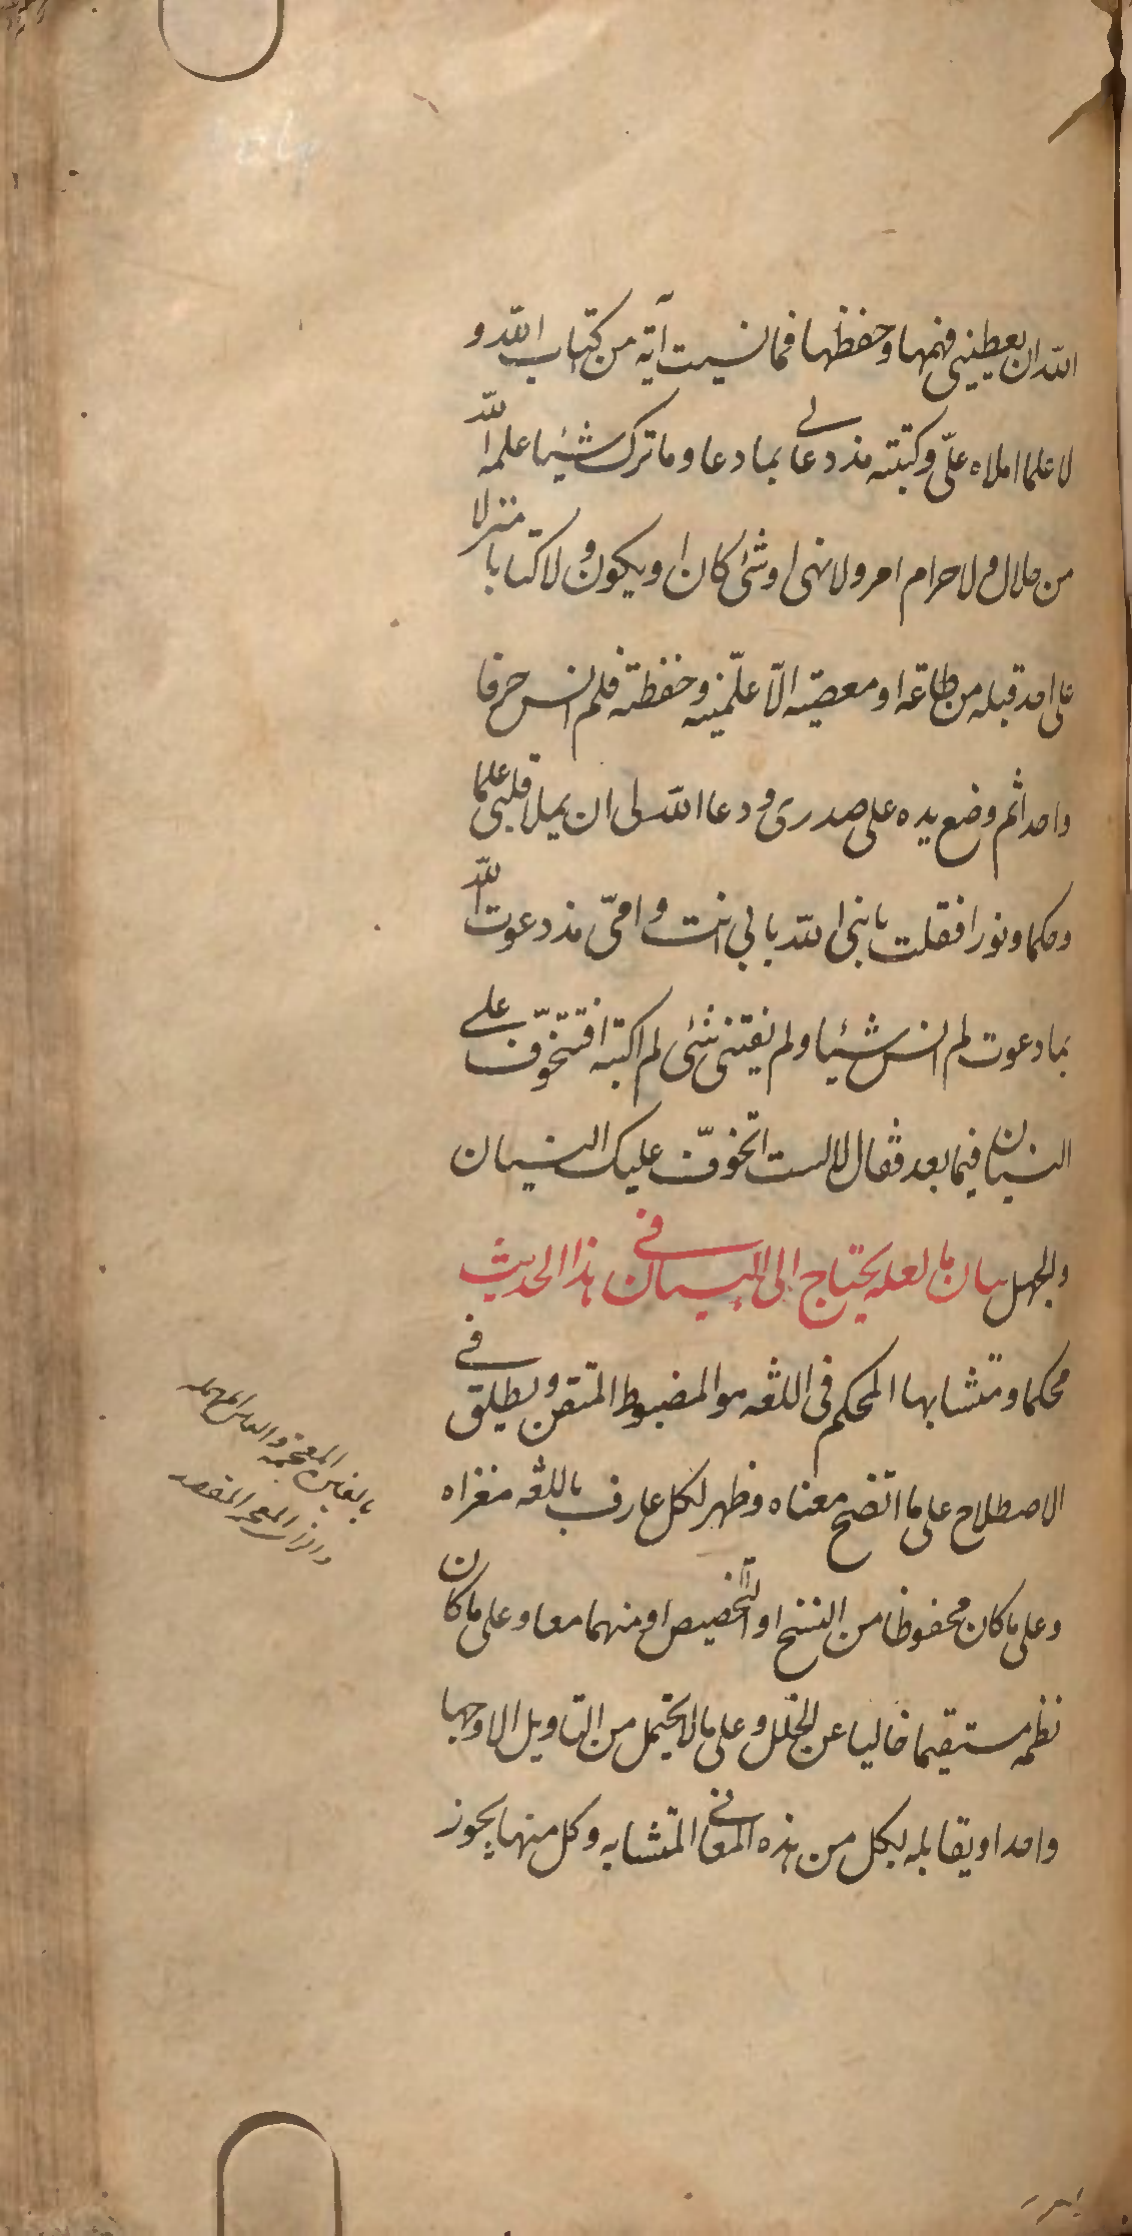 الله ان يعطيني فهمها وحفظها فما نسيت آية من كتاب الله و
لا علما املاه علىّ وكتبته مذ دعا لى بما دعا وما ترك شيئا علمه الله
من حلال ولا حرام امر ولا نهى او شئ كان او يكون ولا كتابا منزلا
على احد قبله من طاعة او معصية الّا علّمنيه وحفظته فلم انس حرفا
واحدا ثم وضع يده على صدرى ودعا الله لى ان يملا قلبى علما
وحكما ونورا فقلت يا نبى الله بابى انت وامىّ مذ دعوت الله
بما دعوت لم انس شيئا ولم يفتنى شئى لم اكتبه افتتخوّف على
النسيان فيما بعد فقال لا لست اتخوّف عليك النسيان
والجهل بيان ما لعله يحتاج الى البيان فى هذا الحديث
محكما ومتشابها المحكم فى اللغه هو المضبوط المتقن ويطلق فى
الاصطلاح على ما اتضح معناه وظهر لكل عارف باللغه مغزاه
وعلى ما كان محفوظا من النسخ او التخصيص او منهما معا وعلى ما كان
نظمه مستقيما خاليا عن الخلل وعلى ما لا يحتمل من التاويل الا وجها
واحدا ويقابله لكل من هذه المعانى المتشابه وكل منها يجوز
بالغين المعجمه والزاى المعجمة المقصد